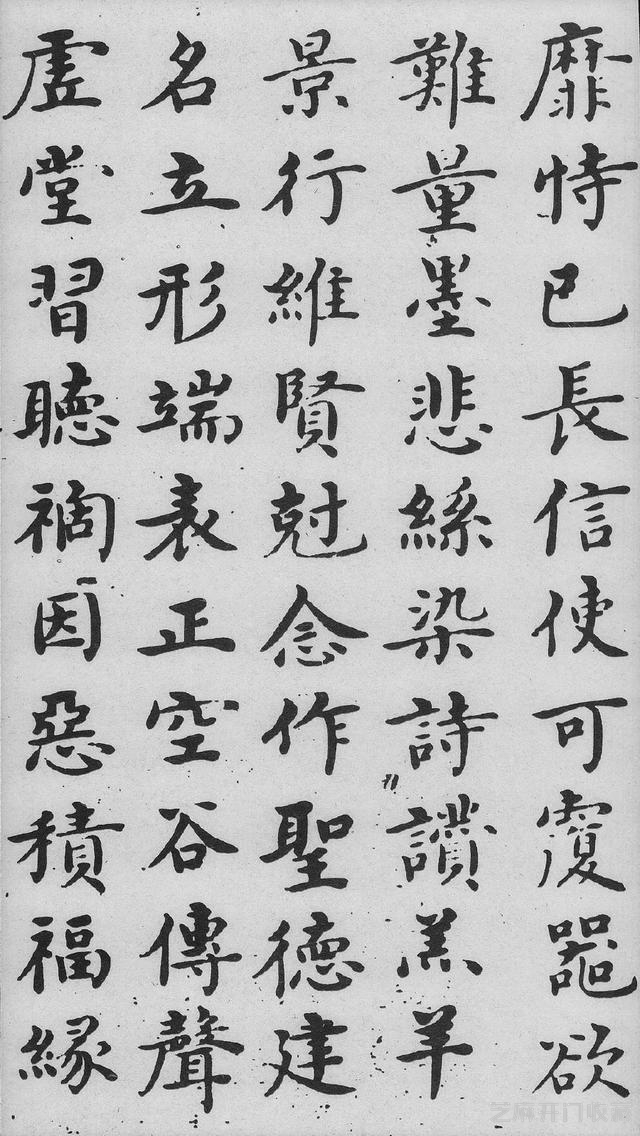 靡恃己長信使可覆器欲
難量墨悲絲染詩讃羔羊
景行維賢尅念作聖德建
名立形端表正空谷傳聲
虛堂習聽禍因惡積福緣
艺麻开门收藏